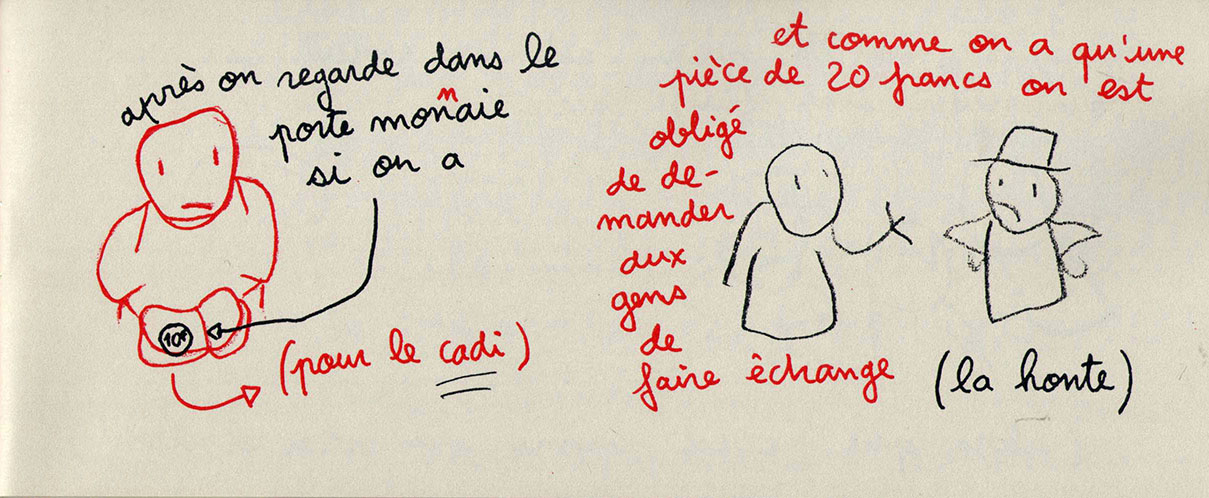 après on regarde dans le
porte monnaie
si on a
10F
(pour le cadi)
et comme on a qu'une
pièce de 20 francs on est
obligé
de de-
mander
aux
gens
de
faire échange
(la honte)